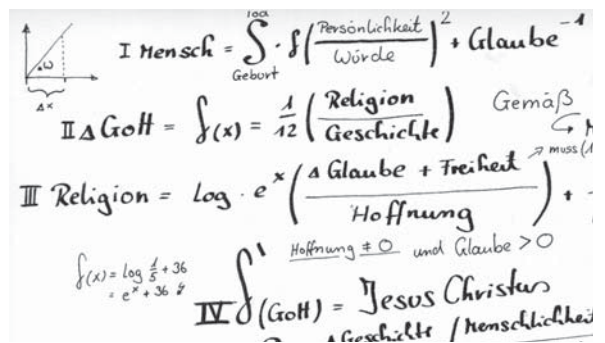 I Mensch = ∫ Geburt Tod · f (Persönlichkeit / Würde)² + Glaube⁻¹
ω
Δx
II Δ Gott = f(x) = 1/12 (Religion / Geschichte)
Gemäß
III Religion = log · eˣ (Δ Glaube + Freiheit / Hoffnung) +
muss (1
Hoffnung ≠ 0 und Glaube > 0
f(x) = log 1/5 + 36
= eˣ + 36
IV f'(Gott) = Jesus Christus
Δ Geschichte / Menschlichkeit